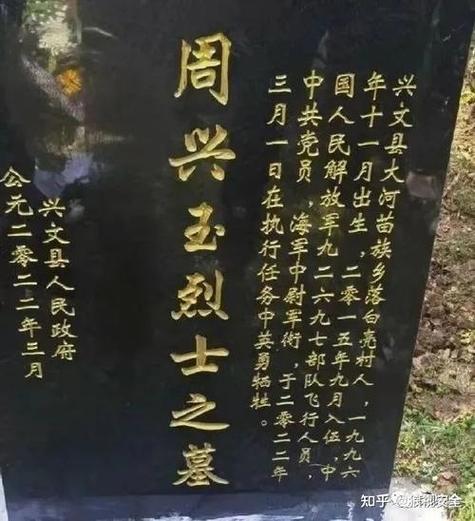 兴文县大河苗族乡落白亮村人，一九九六
年十一月出生，二零一五年九月入伍，中
国人民解放军九二六九七部队飞行人员，
中共党员，海军中尉军衔，于二零二二年
三月一日在执行任务中英勇牺牲。
周兴玉烈士之墓
兴文县人民政府
公元二零二二年三月
知乎